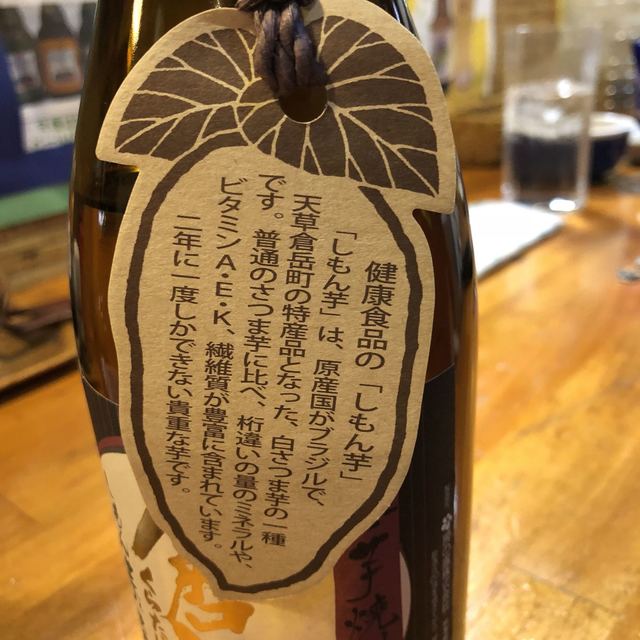 健康食品の「しもん芋」
「しもん芋」は、原産国がブラジルで、
天草倉岳町の特産品となった、白さつま芋の一種
です。普通のさつま芋に比べ、桁違いの量のミネラルや、
ビタミンA・E・K、繊維質が豊富に含まれています。
二年に一度しかできない貴重な芋です。
芋焼